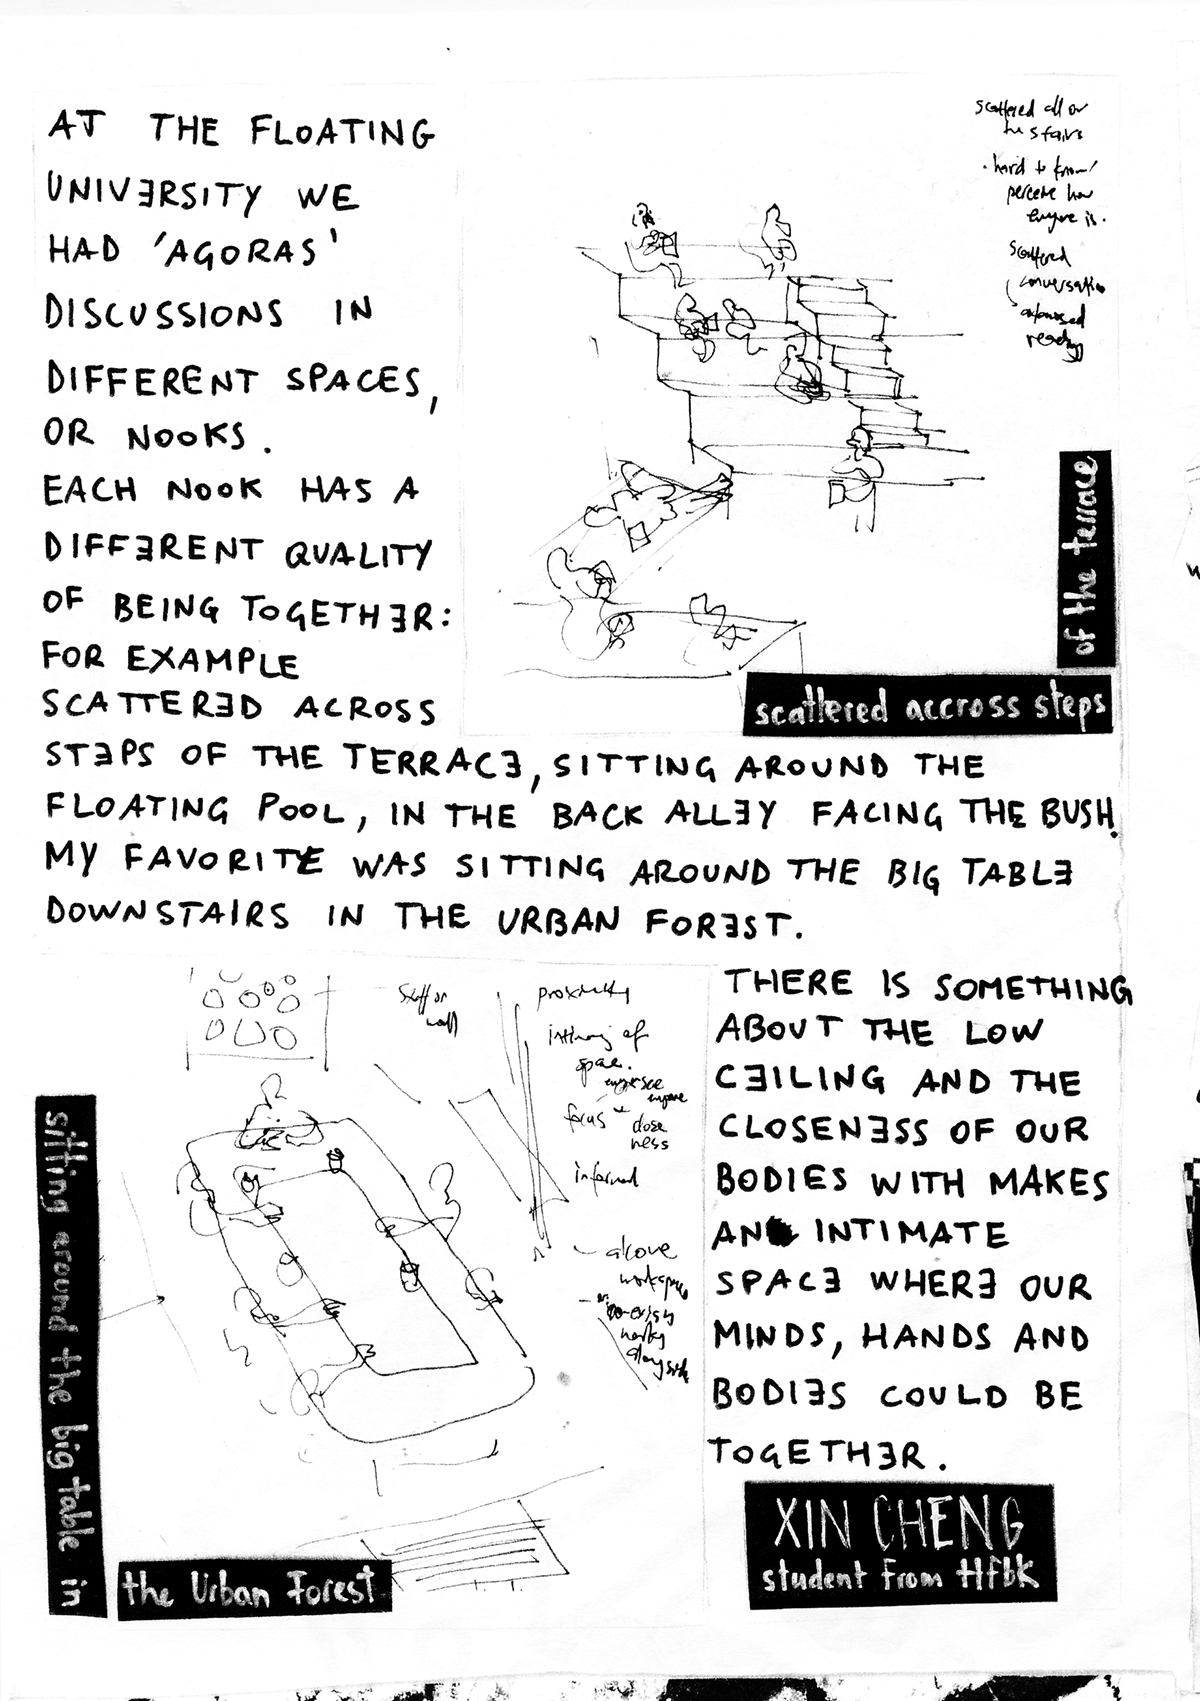 AT THE FLOATING
UNIVERSITY WE
HAD 'AGORAS'
DISCUSSIONS IN
DIFFERENT SPACES,
OR NOOKS.
EACH NOOK HAS A
DIFFERENT QUALITY
OF BEING TOGETHER:
FOR EXAMPLE
SCATTERED ACROSS
STEPS OF THE TERRACE, SITTING AROUND THE
FLOATING POOL, IN THE BACK ALLEY FACING THE BUSH.
MY FAVORITE WAS SITTING AROUND THE BIG TABLE
DOWNSTAIRS IN THE URBAN FOREST.
scattered all or
the stairs
- hard to know/
perceive how
everyone is.
scattered
conversation
reading
scattered accross steps
of the terrace
THERE IS SOMETHING
ABOUT THE LOW
CEILING AND THE
CLOSENESS OF OUR
BODIES WITH MAKES
AN INTIMATE
SPACE WHERE OUR
MINDS, HANDS AND
BODIES COULD BE
TOGETHER.
Stuff on
wall
proximity
intimacy of
space.
focus
close
ness
informal
- alcove
workspace
alongside
sitting around the big table in
the Urban Forest
XIN CHENG
student from Hfbk